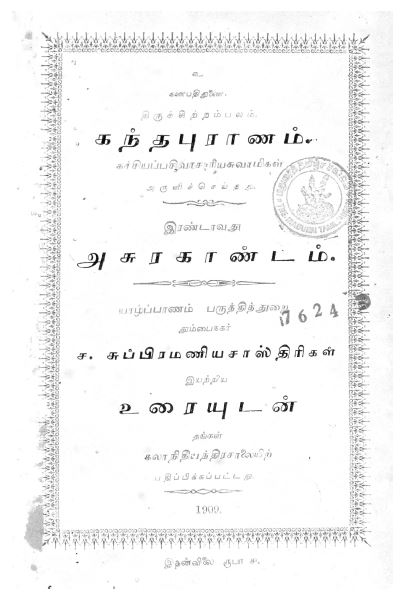 உ
கணபதிதுணை.
திருச்சிற்றம்பலம்.
கந்தபுராணம்.
கச்சியப்பசிவாசாரியசுவாமிகள்
அருளிச்செய்தது.
இரண்டாவது
அசுரகாண்டம்.
யாழ்ப்பாணம் பருத்தித்துறை
7624
தும்பைநகர்
ச. சுப்பிரமணியசாஸ்திரிகள்
இயற்றிய
உரையுடன்
தங்கள்
கலாநிதியந்திரசாலையிற்
பதிப்பிக்கப்பட்டது.
1909.
இதன்விலை ரூபா ௪.